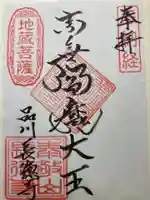 奉拝
経
南無閻魔大王
地蔵菩薩
品川
長徳寺